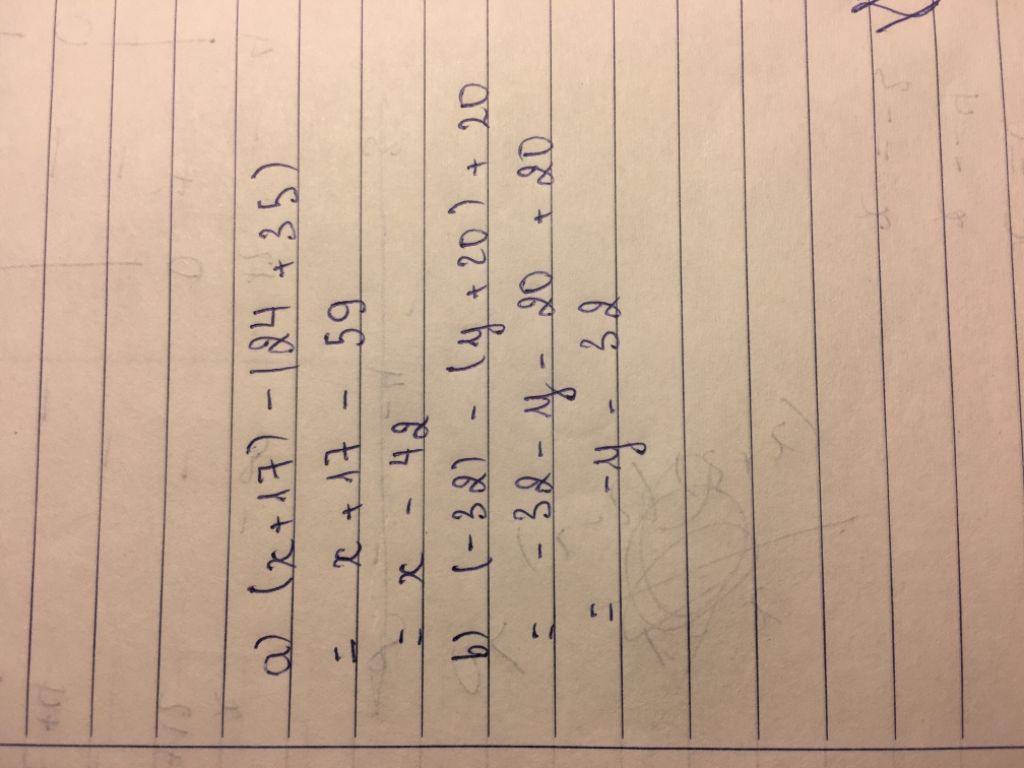 a) (x + 17) - (24 + 35)
= x + 17 - 59
= x - 42
b) (-32) - (y + 20) + 20
= - 32 - y - 20 + 20
= - y - 32